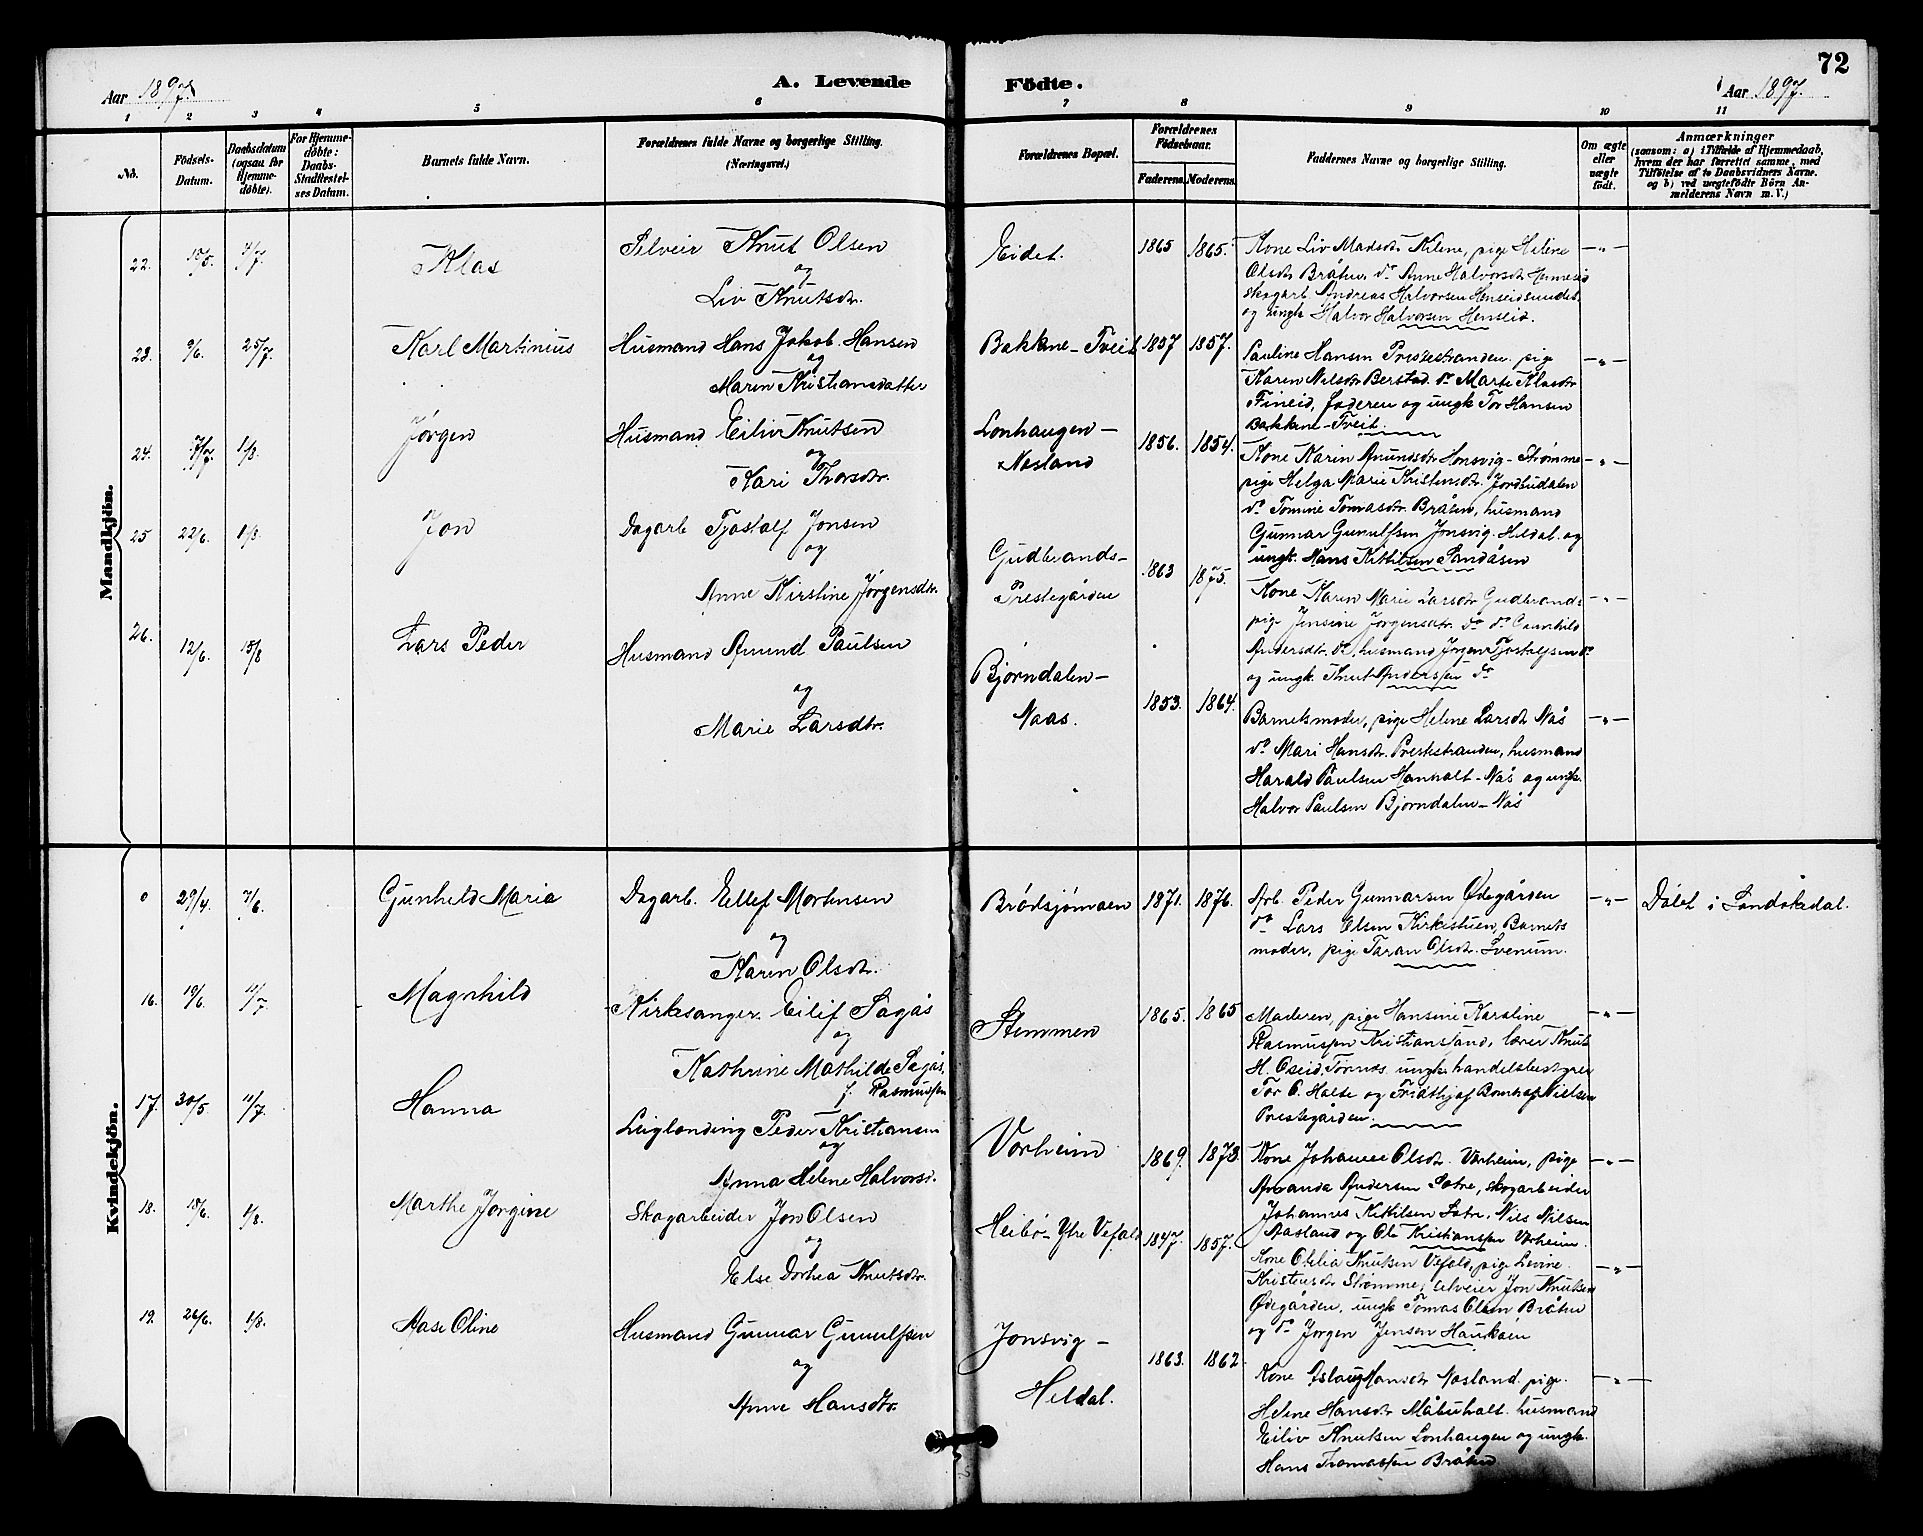 72
Aar 1897
A. Levende Födte.
Aar 1897.
1 2 3 4 5 6 7 8 9 10 11
No.
Födsels-Datum.
Daabsdatum (ogsaa for Hjemme-döbte).
For Hjemme-döbte: Daabs-Stadfæstel-ses Datum.
Barnets fulde Navn.
Forældrenes fulde Navne og borgerlige Stilling. (Næringsvei.)
Forældrenes Bopæl.
Forældrenes Födselsaar.
Faderens. Moderens.
Faddernes Navne og borgerlige Stilling.
Om ægte eller uægte födt.
Anmærkninger
(saasom: a) i Tilfælde af Hjemmedaab,
hvem der har forrettet samme, med
Tilföielse af to Daabsvidners Navne.
og b) ved uægtefödte Börn An-
melderens Navn m. V.)
Mandkjön.
22. 4/7. Klas
Selveier Knut Olsen
og
Liv Knutsdtr.
Eidet. 1865 1865.
Kone Liv Madsdtr Kilene, pige Helene
Olsdtr Bråten, do Anne Halvorsdtr Henseid
skogarb. Andreas Halvorsen Henseidsundet,
og ungk Halvor Halvorsen Henseid. -"-
23. 9/6. 25/7. Karl Martinius
Husmand Hans Jakob Hansen
og
Maren Kristiansdatter
Bakkane-Tveit 1857 1857.
Pauline Hansen Prestestranden. pige
Karen Nilsdtr Berstad. do Marte Klasdtr
Fineid, faderen og ungk Tor Hansen
Bakkane-Tveit. -"-
24. 1/8. Jørgen
Husmand Eiliv Knutsen
og
Kari Thorsdtr.
Lonhaugen-
Nasland 1856. 1854.
Kone Karin Amundsdtr Honsvig-Strømme
pige Helga Marie Kristensdtr. Jordsudalen
do Tomine Tomasdtr. Bråten, husmand
Gunnar Gunulfsen Jonsvig-Heldal. og
ungk. Hans Kittilsen Sandåsen -"-
25 22/6. 1/8. Jon
Dagarb Tjostolf Jonsen
og
Anne Kirstine Jørgensdtr.
Gudbrands-
Prestegården 1863 1875.
Kone Karen Marie Larsdtr Gudbrands-
pige Jensine Jørgensdtr. do do Gunhild
Andersdtr. do, husmand Jørgen Tjostolfsen do
og ungk. Knut Anderssen do -"-
26. 12/6. 15/8 Lars Peder
Husmand Amund Paulsen
og
Marie Larsdtr.
Bjørndalen-
Naas. 1853. 1864.
Barnetsmoder, pige Helene Larsdtr Nås
do Mari Hansdtr. Prestestranden, husmand
Harald Paulsen Hanholt-Nås og ungk.
Halvor Paulsen Bjørndalen-Nås -"-
Kvindekjön.
0 29/4. 7/6. Gunhild Maria
Dagarb. Ellef Mortensen
og
Karen Olsdtr.
Brødsjømoen 1871. 1876.
Arb. Peder Gunnarsen Ødegården
do Lars Olsen Kirkestuen, Barnets
moder, pige Taran Olsdtr. Svenum. -"- Døbt i Sandøkedal.
16. 19/6. 11/7. Magnhild
Kirkesanger Eilif Sagås
og
Kathrine Mathilde Sagås,
f. Rasmussen
Stemmen 1865. 1865
Moderen, pige Hansine Karoline
Rasmussen Kristianssand, lærer Knut
H. Oseid, Tornes. ungk handelsbestyrer
Tor O. Holte og Fridthjof Nielsen
Prestegården. -"-
17. 30/5. 11/7. Hanna
Leiglending Peder Kristiansen
og
Anna Helene Halvorsd.
Vorheim 1869. 1873.
Kone Johanne Olsdtr. Vorheim, pige
Amanda Andersen Sotre, skogarbeider
Johannes Kittilsen Sotre, Nils Nilsen
Aasland og Ole Kristianssen Vorheim. -"-
18. 15/6. 1/8. Marthe Jørgine
Skogarbeider Jon Olsen
og
Else Dorthea Knutsdtr.
Heibø-Ytre Vefald 1847. 1857.
Kone Otilia Knutsen Vefald, pige Levine
Kristensdtr Strømme, selveier Jon Knutsen
Ødegården, ungk Tomas Olsen Bråten
og do Jørgen Jensen Haukåen -"-
19. 26/6. 1/8. Aase Oline
Husmand Gunnar Gunulfsen
og
Anne Hansdtr.
Jonsvig-
Heldal. 1863. 1862
Kone Aslaug Hansdtr Nasland. pige.
Helene Hansdtr Måbuholt. husmand
Eiliv Knutsen Lonhaugen og ungk.
Hans Tomassen Bråten -"-